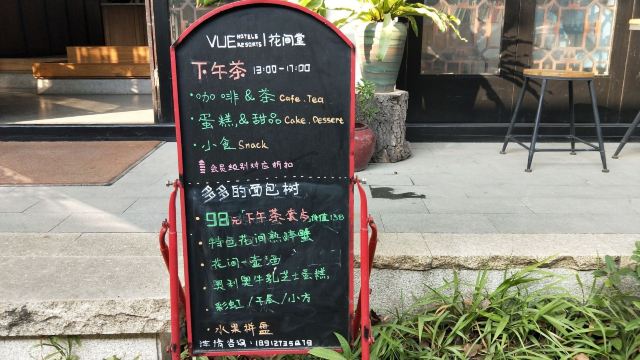 VUE HOTELS RESORTS | 花间堂
下午茶 13:00-17:00
·咖啡&茶 Cafe.Tea
·蛋糕&甜品 Cake.Dessert
·小食 Snack
会员级别对应折扣
多多的面包树
·98元下午茶套点,价值138
·特色花间熟醉蟹
·花间一壶酒
·奥利奥牛乳芝士蛋糕,
彩虹/千层/小方
·水果拼盘
详情咨询: